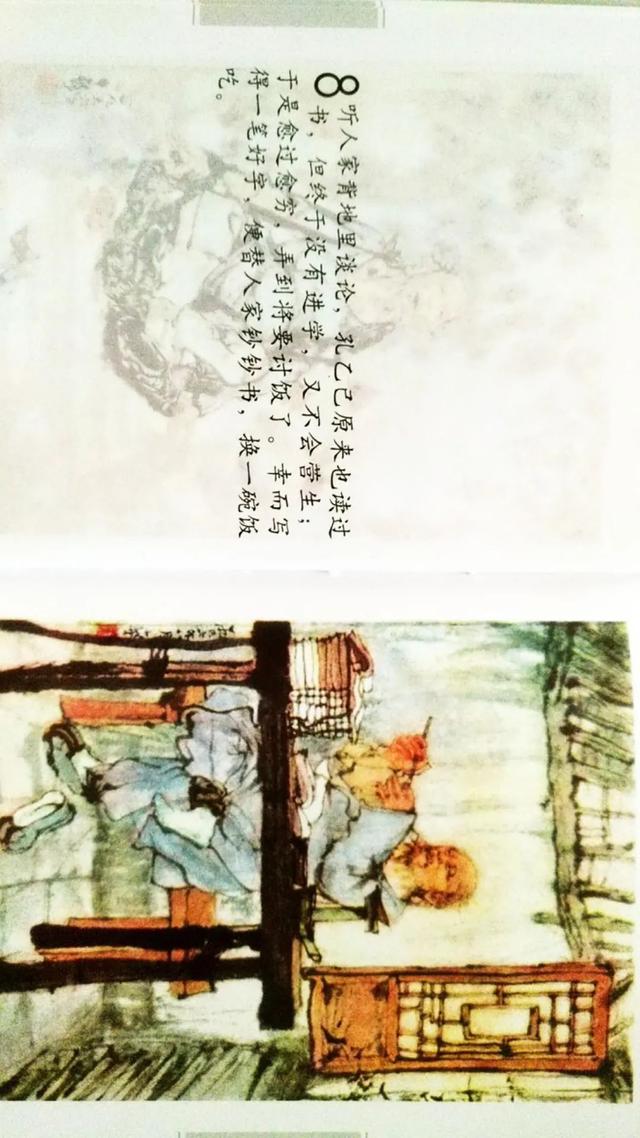 8
听人家背地里谈论，孔乙己原来也读过
书，但终于没有进学，又不会营生；
于是愈过愈穷，弄到将要讨饭了。幸而写
得一笔好字，便替人家钞钞书，换一碗饭
吃。